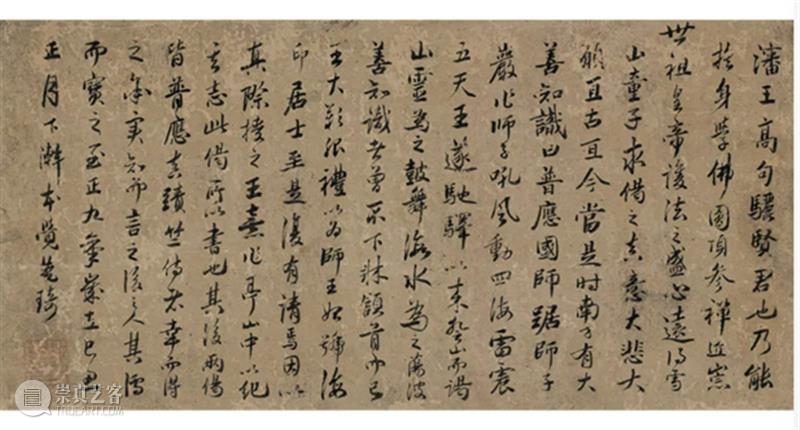 瀋王高句驪賢君也乃能
捨身學佛圓頂參禪近窺
世祖皇帝護法之盛心遠得雪
山童子求偈之真意大悲大
願亘古亘今當是時南方有大
善知識曰普應國師踞師子
巖作師子吼風動四海雷震
五天王遂馳驛以來登山而謁
山靈為之鼓舞海水為之蕩波
善知識者曾不下牀頷首而已
王大歎服禮以為師王始號海
印居士至是復有請焉因以
真際授之王喜作亭山中以紀
其志此偈所以書也其後兩偈
皆普應真蹟竺侍者幸而得
之余實知而言之後之人其
而寶之至正九年歲在己丑
正月下澣本覺梵琦
崇真艺客
TRUEART.COM